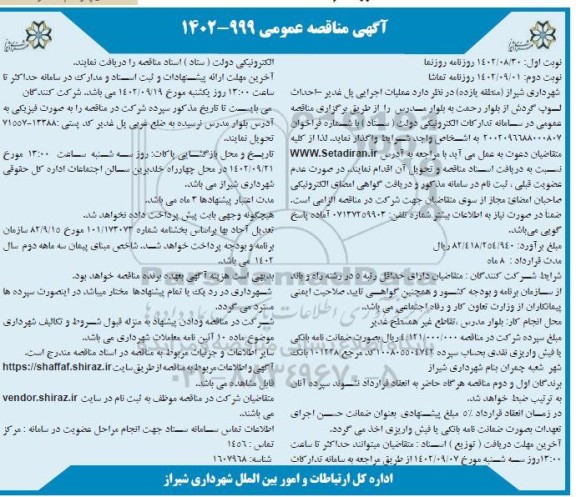 آگهی مناقصه عمومی ۹۹۹-۱۴۰۲
نوبت اول: ۱۴۰۲/۰۸/۳۰ روزنامه روزنما
نوبت دوم: ۱۴۰۲/۰۹/۰۱ روزنامه تماشا
شهرداری شیراز (منطقه یازده) در نظر دارد عملیات اجرایی پل غدیر -احداث
لوپ گردش از بلوار رحمت به بلوار مدرس را از طریق برگزاری مناقصه
عمومی در سامانه تدارکات الکترونیکی دولت ( ستاد ) با شماره فراخوان
۲۰۰۲۰۹۶۶۸۸۰۰۰۸۰۷ به اشخاص واجد شرایط واگذار نماید. لذا از کلیه
متقاضیان دعوت به عمل می آید با مراجعه به آدرس WWW.Setadiran.ir
نسبت به دریافت اسناد مناقصه و تحویل آن اقدام نمایند. در صورت عدم
عضویت قبلی ، ثبت نام در سامانه مذکور و دریافت گواهی امضای الکترونیکی
صاحبان امضای مجاز از سوی متقاضیان جهت شرکت در مناقصه الزامی است.
ضمنا در صورت نیاز به اطلاعات بیشتر شماره تلفن: ۰۷۱۳۷۲۵۹۹۰۳ آماده پاسخ
گویی می‌باشد.
مبلغ برآورد: ۸۲/۴۱۸/۲۵۴/۹۴۰ ریال
مدت قرارداد : ۸ ماه
شرایط شرکت کنندگان : متقاضیان دارای حداقل رتبه ۵ در رشته راه و باند
از سازمان برنامه و بودجه کشور و همچنین گواهی تایید صلاحیت ایمنی
پیمانکاران از وزارت تعاون کار و رفاه اجتماعی می باشد.
محل انجام کار: بلوار مدرس ،تقاطع غیر همسطح غدیر
مبلغ سپرده شرکت در مناقصه ۴/۱۲۱/۰۰۰/۰۰۰ ریال بصورت ضمانت نامه بانکی
یا فیش واریزی نقدی بحساب سپرده ۱۰۰۸۰۵۵۰۴۷۴۲ کد مرجع ۱۰۱۲۲۸ بانک
شهر شعبه چمران بنام شهرداری شیراز
برندگان اول و دوم مناقصه هرگاه حاضر به انعقاد قرارداد نشوند سپرده آنان
به ترتیب ضبط خواهد شد.
در زمان انعقاد قرارداد ۵٪ مبلغ پیشنهادی بعنوان ضمانت حسن اجرای
تعهدات بصورت ضمانت نامه بانکی یا فیش واریزی اخذ می گردد.
آخرین مهلت دریافت ( توزیع ) اسناد : متقاضیان میتوانند حداکثر تا ساعت
۱۳:۰۰روز سه شنبه مورخ ۱۴۰۲/۰۹/۰۷ از طریق مراجعه به سامانه تدارکات
الکترونیکی دولت ( ستاد ) اسناد مناقصه را دریافت نمایند.
آخرین مهلت ارائه پیشنهادات و ثبت اسناد و مدارک در سامانه حداکثر تا
ساعت ۱۳:۰۰ روز یکشنبه مورخ ۱۴۰۲/۰۹/۱۹ می باشد. شرکت کنندگان
می بایست تا تاریخ مذکور سپرده شرکت در مناقصه را به صورت فیزیکی به
آدرس بلوار مدرس نرسیده به ضلع غربی پل غدیر کد پستی :۱۳۳۸۸-۷۱۵۵۷
تحویل نمایند.
تاریخ و محل بازگشایی پاکات: روز سه شنبه ساعت ۱۳:۰۰ مورخ
۱۴۰۲/۰۹/۲۱ در محل چهارراه خلدبرین سالن اجتماعات اداره کل حقوقی
شهرداری شیراز می باشد.
مدت اعتبار پیشنهادها ۳ ماه می باشد.
هیچگونه وجهی بابت پیش پرداخت داده نخواهد شد.
تعدیل آحاد بها براساس بخشنامه شماره ۱۰۱/۱۷۳۰۷۳ مورخ ۸۲/۹/۱۵ سازمان
برنامه و بودجه پرداخت خواهد شد. شاخص مبنای پیمان سه ماهه دوم سال
۱۴۰۲ می باشد.
بدیهی است هزینه آگهی بعهده برنده مناقصه خواهد بود.
شهرداری در رد یک یا تمام پیشنهادها مختار میباشد در اینصورت سپرده ها
مسترد می گردد.
شرکت در مناقصه ودادن پیشنهاد به منزله قبول شروط و تکالیف شهرداری
موضوع ماده ۱۰ آئین نامه معاملات شهرداری می باشد.
سایر اطلاعات و جزئیات مربوط به مناقصه در اسناد مناقصه مندرج است.
آگهی و اطلاعات مربوط به مناقصه از طریق سایت https://shaffaf.shiraz.ir
قابل مشاهده می باشد.
متقاضیان شرکت در مناقصه موظف به ثبت نام در سایت vendor.shiraz.ir
می باشند.
اطلاعات تماس سامانه ستاد جهت انجام مراحل عضویت در سامانه : مرکز
تماس : ۱۴۵۶
شناسه: ۱۶۰۷۹۶۸
اداره کل ارتباطات و امور بین الملل شهرداری شیراز
۰۲۱-۸۸۳۴۹۶۷۰-۵